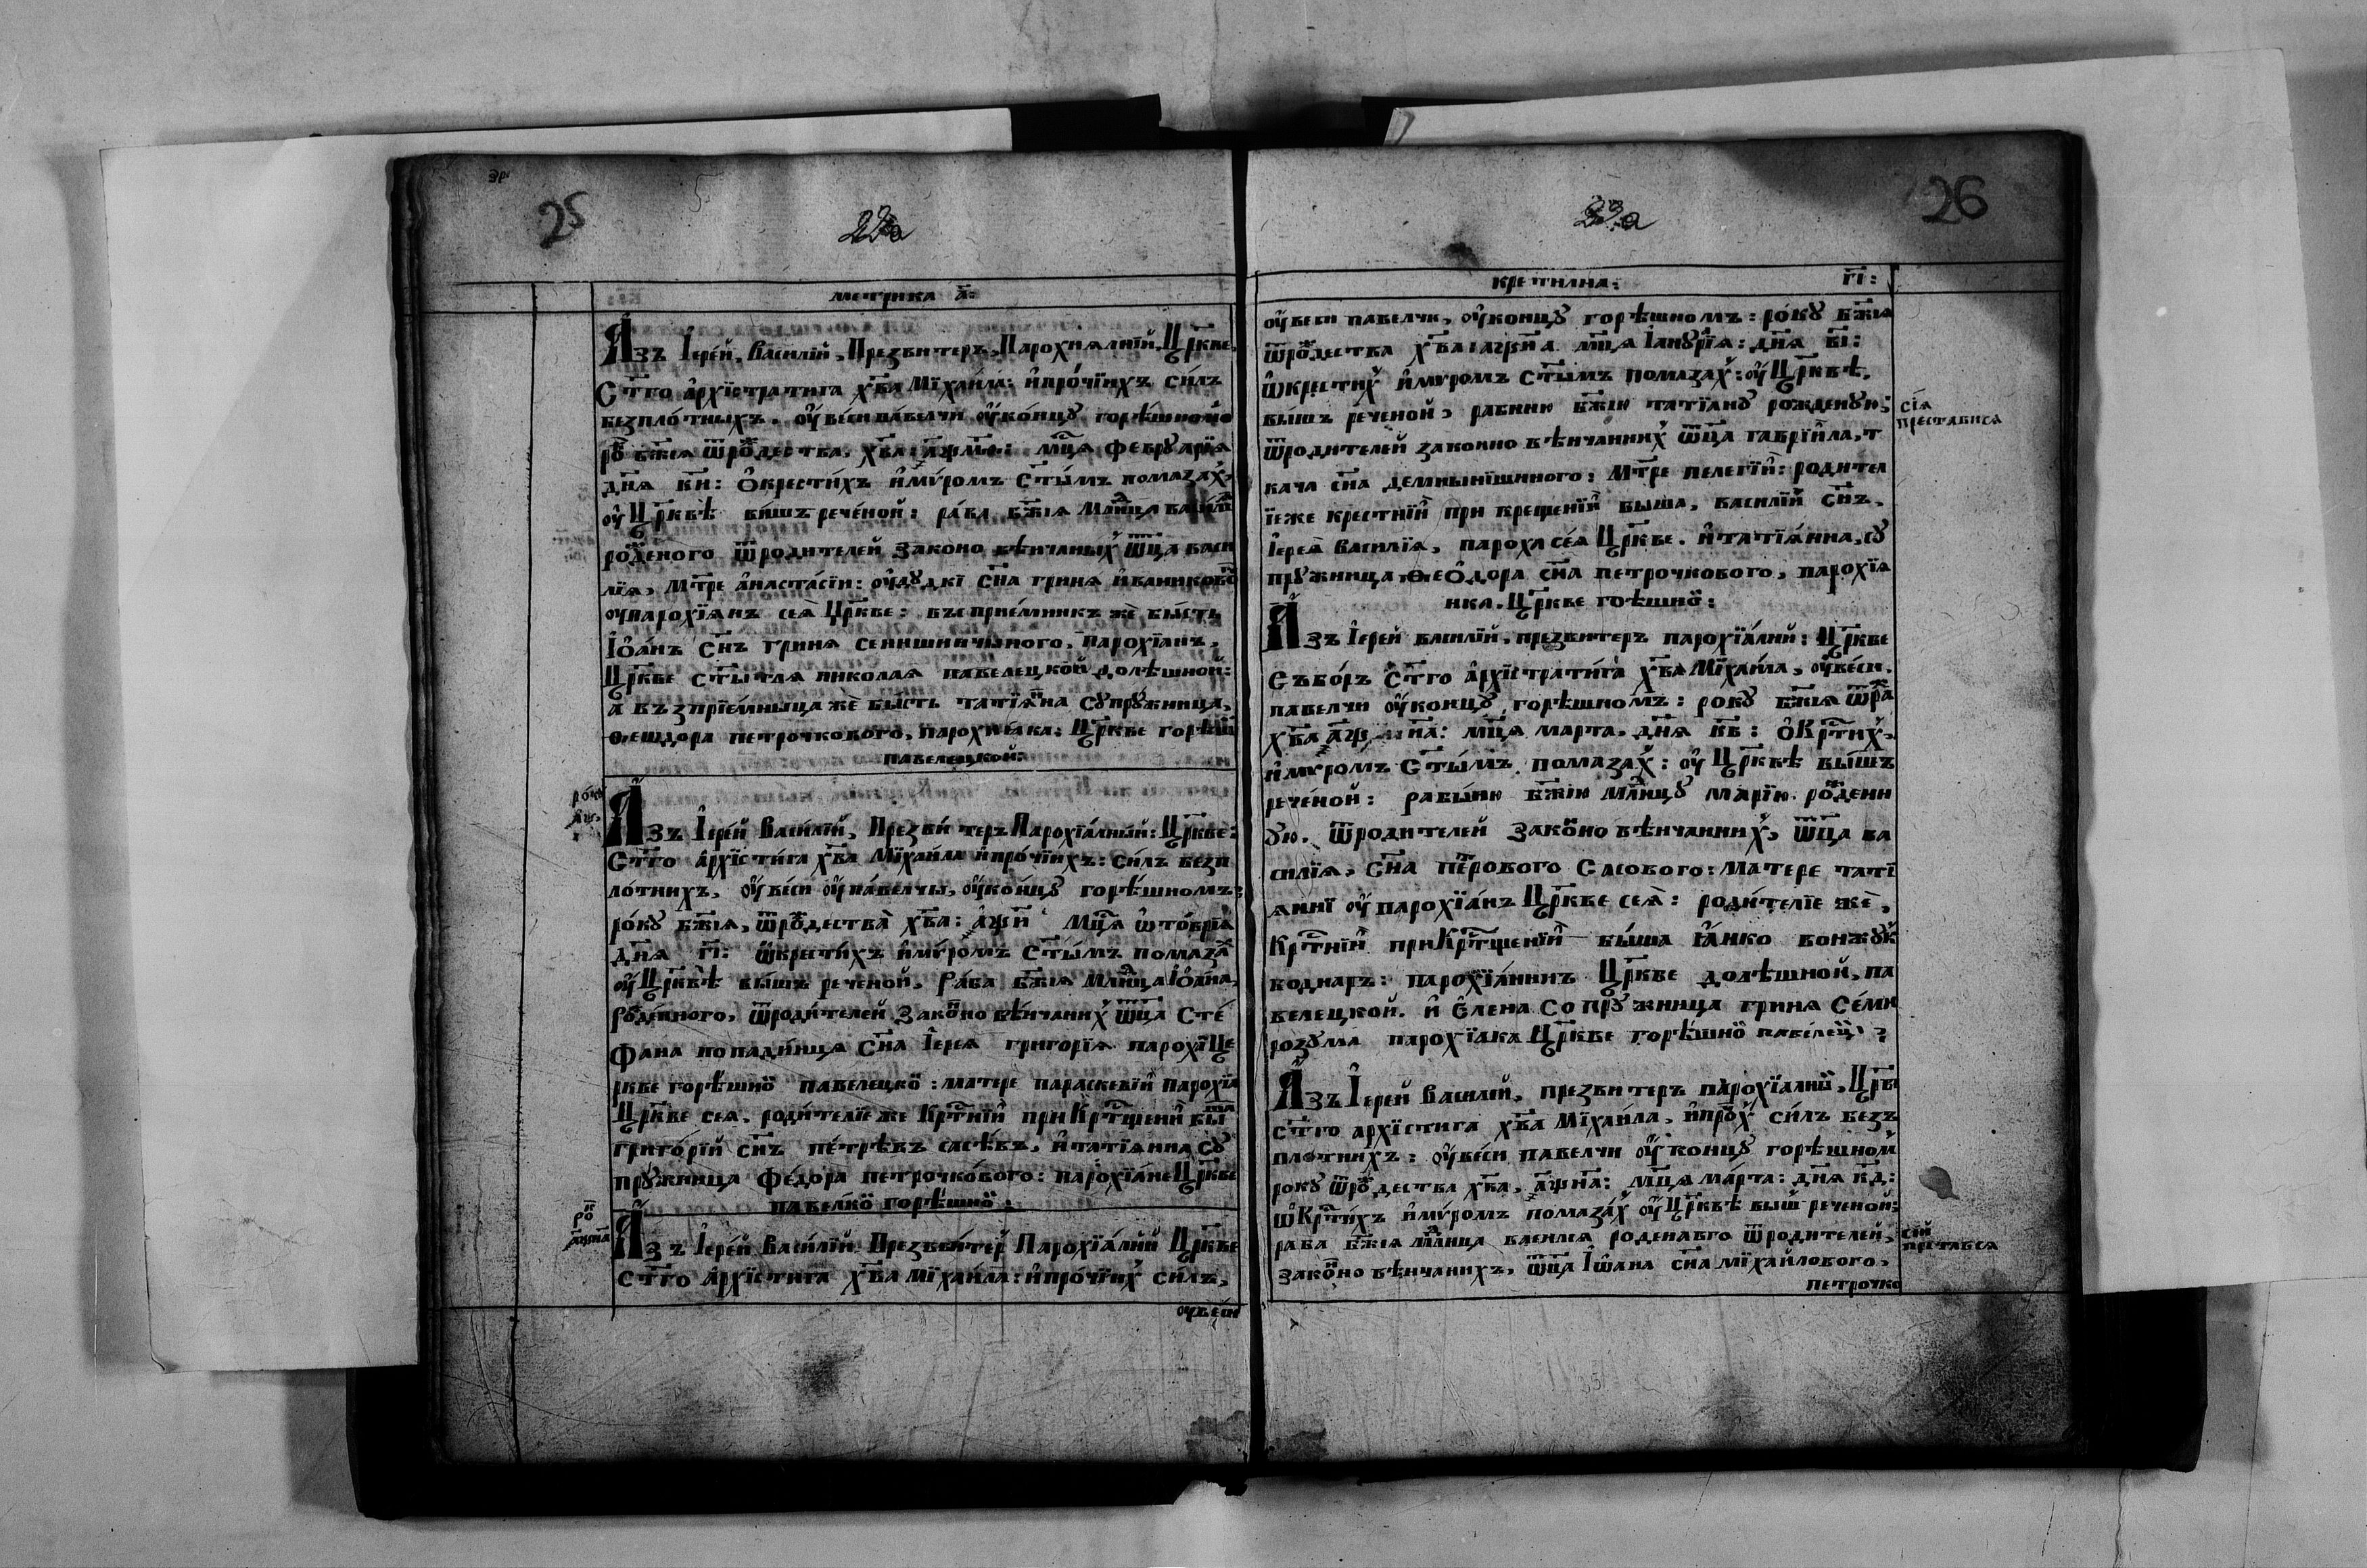 25
22а
метрика а҃:
Азъ Іере́й, Василій, Презвитеръ, Парохиялній, Цр҃кве,
Ст҃го а҆рхїстратига хв҃а Мїхаи́ла: и҆про́чїихъ си́лъ
безпло́тныхъ. оу҆ве́си па́велчи оу҆ко́нцꙋ горѣ́шномъ
бж҃їя ѿрож҃дества. хв҃а: мц҃я февруарїя
дн҃я ки҃: О҆крести́хъ и҆мѵ́ромъ Ст҃ымъ помаза́х,
оу҆ Цр҃квѣ ви́шъ рече́ной: ра́ба бж҃їя Млⷣнца васил
рожⷣеного ѿродителей законо вѣнчаныхъ ѿц҃а васи
лїя, Мт҃ре а҆наста́сїи: оу҆дꙋдкі сн҃а гриня и҆ваниково
оупарохїянъ сея̀ Цр҃кве: въспрїе́мникъ жѐ бы́сть
Іѡ́анъ Сн҃ъ гриня сенишинчиного, парохїанъ,
Цр҃кве ст҃ытля николая павелецкой долѣшной:
а възпрїе́мныца жѐ бы́сть татїа҆на сꙋпрꙋжница,
Ѳеѡдора петрочкового, парохия́ка: Цр҃кве горѣш
павелецкой:
ро́кꙋ
Азъ Іере́й Васи́лїй, Презви́теръ Парохїа́лный: Цр҃кве:
Ст҃го а҆рхїсти́га хв҃а Мїхаи́ла и҆про́чїихъ: си́лъ безп
ло́тнихъ, оу҆ве́си оу҆па́велчы, оу҆ко́нцꙋ горѣ́шномъ:
ро́кꙋ бж҃їя, ѿрож҃дества̀ хв҃а: а҃ѱн҃ Мц҃я ѡ҆то́врїа
дн҃я гі҃: ѡ҆крести́хъ и҆мѵ́ромъ Ст҃ымъ помаза́х
оу҆ Цр҃квѣ вы́шъ реченой, Ра́ба бж҃їя Млⷣнца Іѡ́а́на,
рожⷣенного, ѿроди́телей Зако́но вѣ́нчаних ѿц҃а Сте́
фана попади́нця Сн҃а Іерея григорїя парохї Це
ркве горѣшно павелецко: матере параскевїи парохїа
Цр҃кве сея. роди́телїе же Крⷭтнїи при Крⷭтщенїи быша
григо́рїй сн҃ъ пе́трѣвъ сасѣ́въ, и҆татїянна сꙋ
прꙋжница фе́дора петрочко́вого: парохїа́не Цр҃кве
павелко горѣ́шно:
ро
а҃ѱна҃
Азъ Іере́й Васи́лїй Презъви́теръ Парохїа́лній Цр҃кве
ст҃го а҆рхїстига хв҃а мїхаи́ла: и҆про́чїих си́лъ,
оувеси
26
крстилна: гі҃:
оу҆веси павелчи, оу҆концꙋ горѣшномъ: ро́кꙋ бж҃їя
ѿрож҃дества хв҃а: а҃ѱн҃а мц҃я Іанꙋрїя: дн҃я ві҃:
ѡ҆крестих и҆мѵромъ Ст҃ымъ помазах: оу҆ Цр҃квѣ,
вы́шъ ре́ченой, рабиню бж҃їю татїанꙋ рожденꙋю:
ѿродителей законно вѣнчанних ѿц҃а гаврїила, т
кача сн҃а демнынїшиного; Мт҃ре пелегїи: родител
їеже крестнїи при крещенїи быша, василїй сн҃ъ,
Іерея̀ Василїя, пароха сея̀ Цр҃кве. и҆татїа́нна, сꙋ
прꙋжница Ѳеѡ҆дора сн҃а петрочкового, парохїя
нка. Цр҃кве гоѣшно:
сїя
преставися
Азъ Іерей василїй, презвитеръ парохїа́лній: Цр҃кве
Съборъ Ст҃го а҆рхїстрати́га хв҃а Мїхаи́ла, оу҆ве́си.
павелчи оу҆концꙋ, горѣшномъ: рокꙋ бж҃їя ѿрож
хв҃а а҃ѱна҃: мц҃я марта. дн҃я кв҃: о҆Крⷭтих,
и҆мѵромъ Ст҃ымъ помазах: оу҆ Цр҃квѣ вы́шъ
рече́ной: рабы́ню бж҃їю Млⷣнцꙋ марїю рожⷣенн
ꙋю. ѿродителей Законо вѣнчанних, ѿц҃а ва
силїя, Сн҃а петрового Сасового: матере таті
янні оу҆парохїа́нъ Цр҃кве сея̀: роди́телїе жѐ,
Крⷭтнїи при Крⷭтщенїи бы́ша Їлико
воднаръ: парохїа́нинъ Цр҃кве долѣшной, па
велецкой. и҆ Елена Сопрꙋжница гриня Се́ми
розꙋма парохїака Цр҃кве горѣшно павелец
Азъ Іерей Василїй, презвитеръ парохїалній, Цр҃кв
ст҃го архїстига хв҃а Мїхаи́ла, и҆проч си́лъ безъ
плотнихъ: оу҆веси павелчи оу҆концꙋ горѣшном
рокꙋ ѿрождества хв҃а, а҃ѱна҃: мц҃я ма́рта: дн҃я кд҃:
ѡ҆Крⷭти́хъ и҆мѵ́ромъ помаза́х оу҆ Цр҃квѣ выш реченой:
раба бж҃їя млⷣнца василїя роденаго ѿродителей,
законо вѣнчанихъ, ѿц҃а Іѡана сн҃а мїхаи́лового,
петрочко
сїй
преставися